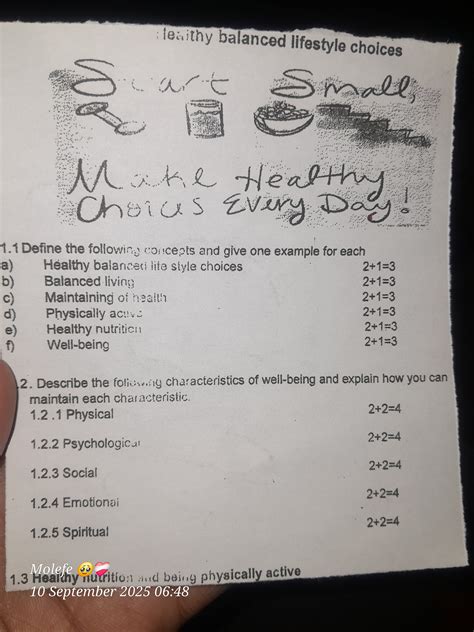 Healthy balanced lifestyle choices
Start Small,
Make Healthy
Choices Every Day!
1.1 Define the following concepts and give one example for each
a) Healthy balanced life style choices 2+1=3
b) Balanced living 2+1=3
c) Maintaining of health 2+1=3
d) Physically active 2+1=3
e) Healthy nutrition 2+1=3
f) Well-being 2+1=3
.2. Describe the following characteristics of well-being and explain how you can
maintain each characteristic.
1.2 .1 Physical 2+2=4
1.2.2 Psychological 2+2=4
1.2.3 Social 2+2=4
1.2.4 Emotional 2+2=4
1.2.5 Spiritual 2+2=4
Molefe 🥺❤️‍🩹
1.3 Healthy nutrition and being physically active
10 September 2025 06:48